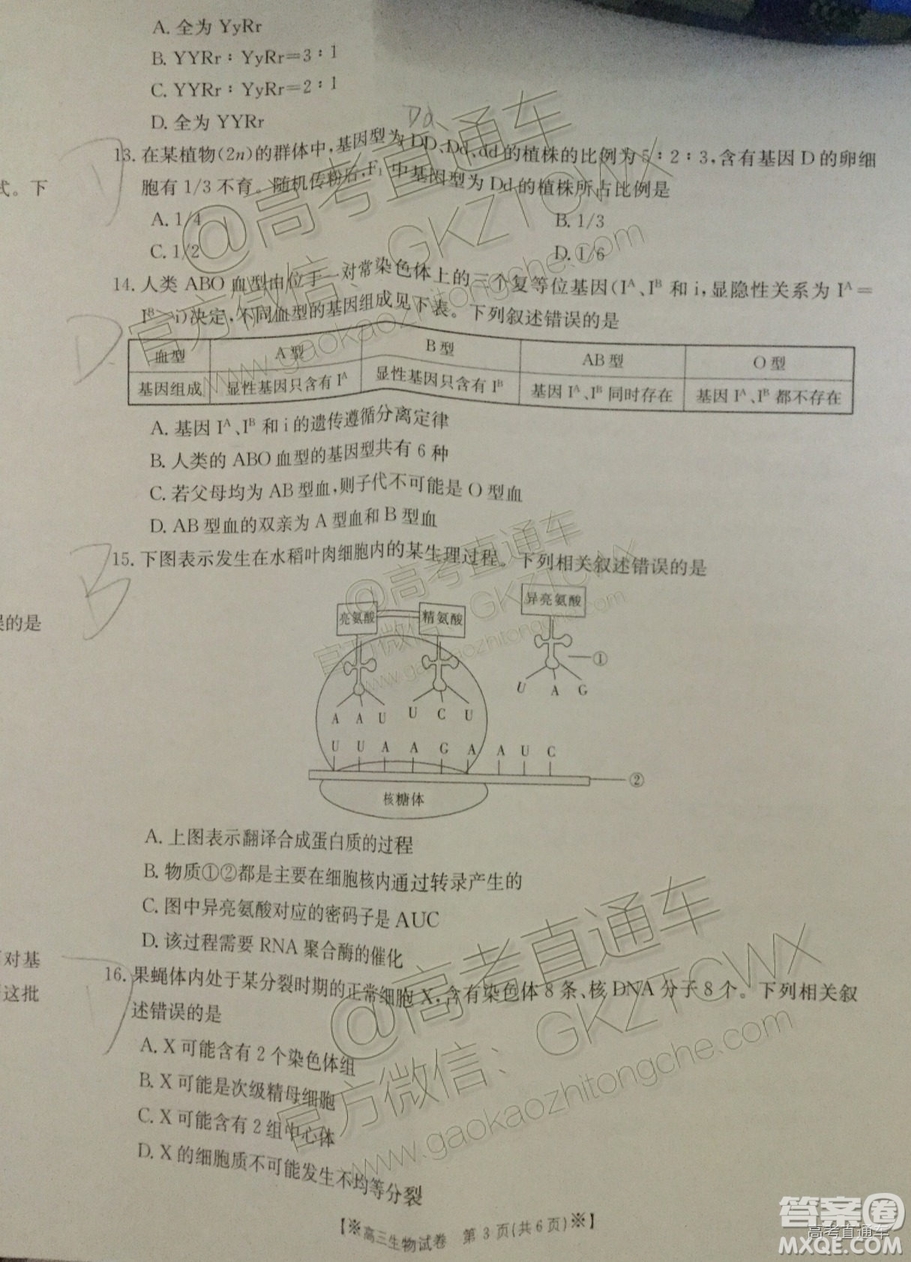 A. 全为 YyRr
B. YYRr∶YyRr=3∶1
C. YYRr∶YyRr=2∶1
D. 全为 YYRr
Dd
D
13. 在某植物(2n)的群体中,基因型为 DD、Dd、dd 的植株的比例为 5∶2∶3,含有基因 D 的卵细
式。下
胞有 1/3 不育。随机传粉后,F₁ 中基因型为 Dd 的植株所占比例是
A. 1/4 B. 1/3
C. 1/2 D. 1/6
D
14. 人类 ABO 血型由位于一对常染色体上的三个复等位基因(Iᴬ、Iᴮ 和 i,显隐性关系为 Iᴬ=
Iᴮ>i)决定,不同血型的基因组成见下表。下列叙述错误的是
血型 A 型 B 型 AB 型 O 型
基因组成 显性基因只含有 Iᴬ 显性基因只含有 Iᴮ 基因 Iᴬ、Iᴮ 同时存在 基因 Iᴬ、Iᴮ 都不存在
A. 基因 Iᴬ、Iᴮ 和 i 的遗传遵循分离定律
B. 人类的 ABO 血型的基因型共有 6 种
C. 若父母均为 AB 型血,则子代不可能是 O 型血
D. AB 型血的双亲为 A 型血和 B 型血
B
15. 下图表示发生在水稻叶肉细胞内的某生理过程。下列相关叙述错误的是
误的是
亮氨酸 精氨酸 异亮氨酸
①
U A G
A A U U C U
U U A A G A A U C
②
核糖体
A. 上图表示翻译合成蛋白质的过程
B. 物质①②都是主要在细胞核内通过转录产生的
C. 图中异亮氨酸对应的密码子是 AUC
D. 该过程需要 RNA 聚合酶的催化
对基
这批
D
16. 果蝇体内处于某分裂时期的正常细胞 X,含有染色体 8 条、核 DNA 分子 8 个。下列相关叙
述错误的是
A. X 可能含有 2 个染色体组
B. X 可能是次级精母细胞
C. X 可能含有 2 组中心体
D. X 的细胞质不可能发生不均等分裂
【※高三生物试卷 第 3 页(共 6 页)※】
@高考直通车
官方微信：GKZTCWX
www.gaokaozhitongche.com
@高考直通车
官方微信：GKZTCWX
www.gaokaozhitongche.com
@高考直通车
官方微信：GKZTCWX
www.gaokaozhitongche.com
答案圈
高考直通车
MXQE.COM